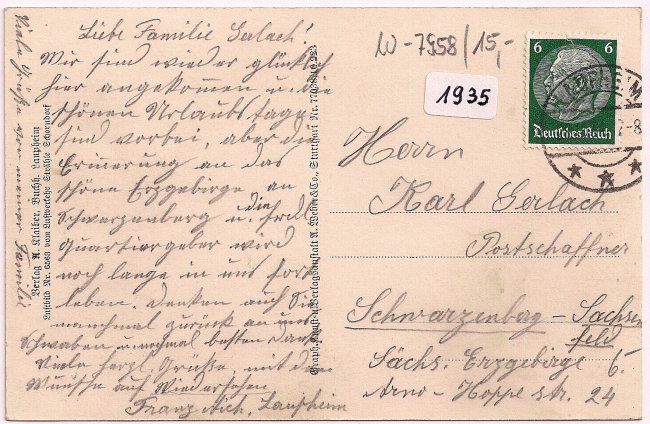 Liebe Familie Gerlach!
Wir sind wieder glücklich
hier angekommen u. die
schönen Urlaubstage
sind vorbei, aber die
Erinerung an das
schöne Erzgebirge an
Schwarzenberg u. die frdl.
Quartiergeber wird
noch lange in uns fort
leben. Denken auch Sie
manchmal zurück an uns
Schwaben u. nochmal besten Dank
Viele herzl. Grüße, mit dem
Wunsche auf Wiedersehen
Franz Aich, Laupheim
Viele Grüße von meiner Familie
Verlag A. Klaiber, Buchh. Laupheim
Luftbild Nr. 6363 vom Luftverkehr Strähle Schorndorf
Graph. Kunst- u. Verlagsanstalt A. Weber & Co., Stuttgart Nr.
W-7958/15,-
1935
6 6
Deutsches Reich
Herrn
Karl Gerlach
Postschaffner
Schwarzenberg - Sachsen
feld
Sächs. Erzgebirge 5.
Arno-Hoppe str. 24